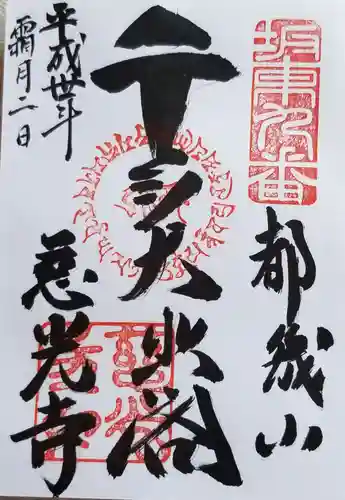 坂東九番
都幾山
千手大悲閣
平成丗年
霜月二日
慈光寺